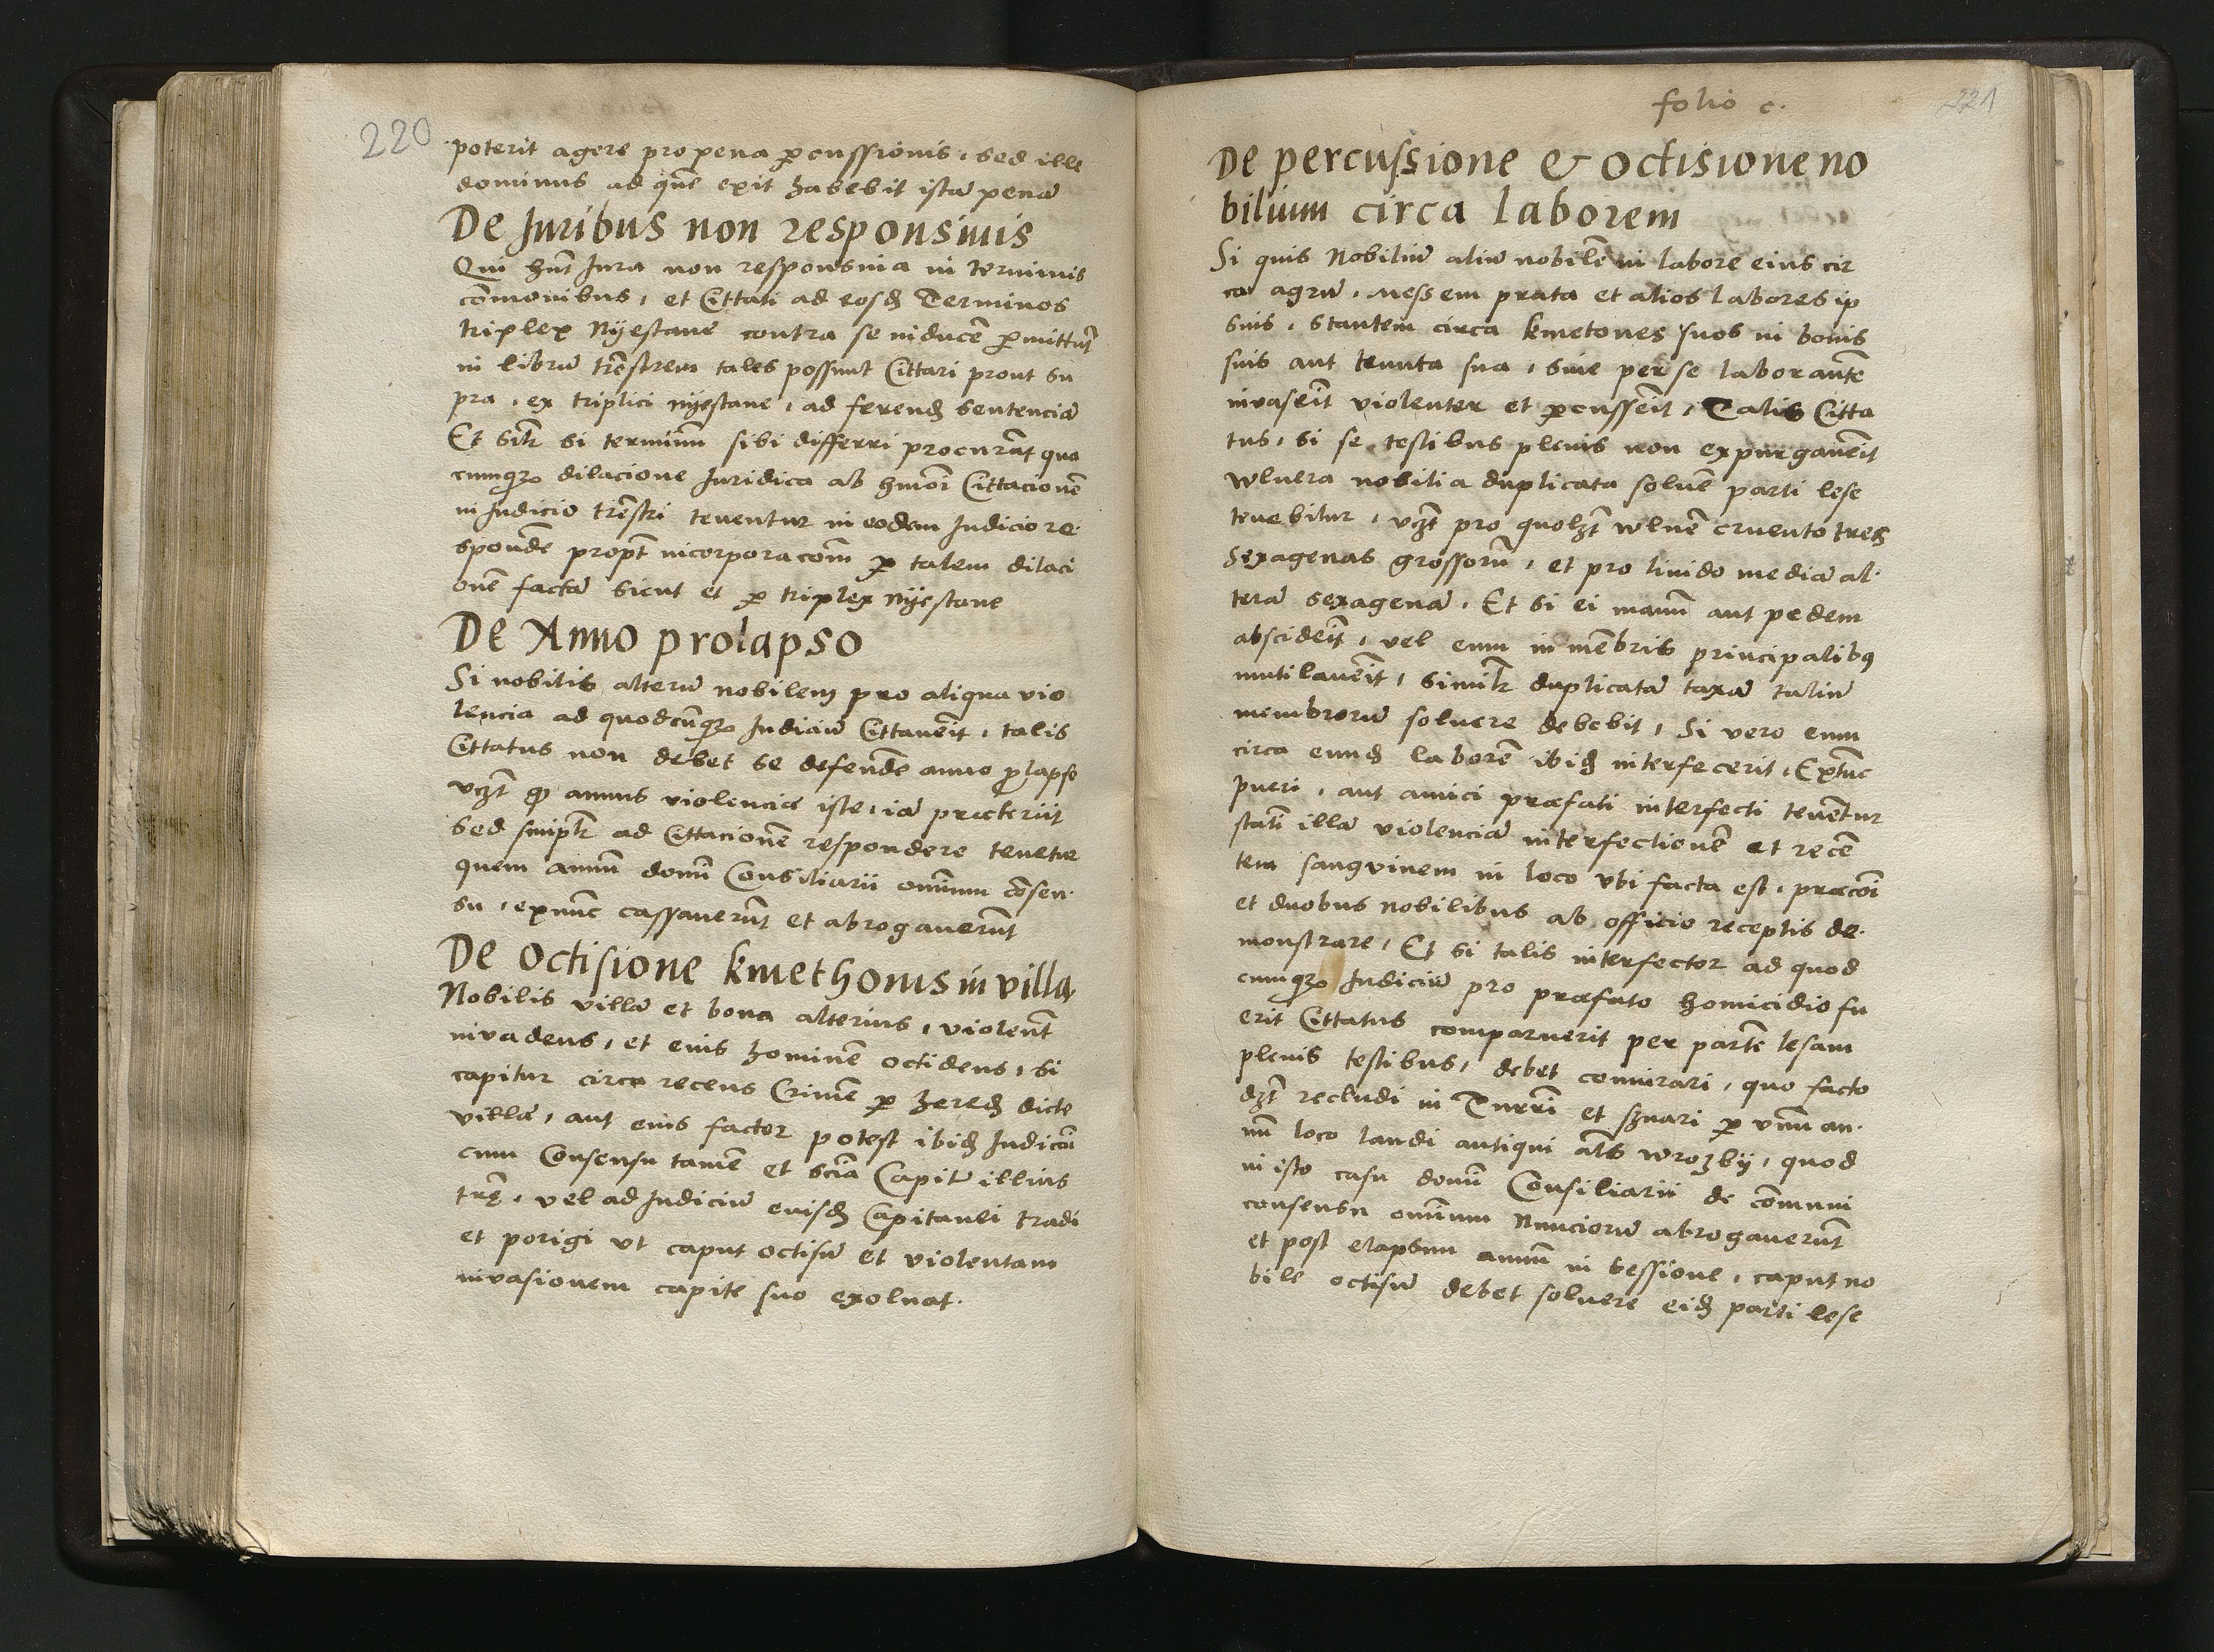 220
poterit agere pro pena ꝑcussionis, sed ille
dominus ad quē exit habebit istā penā
De Iuribus non responsiuis
Qui hn̄t Iura non responsiua in terminis
cōmonibus, et Cittati ad eosdꝫ Terminos
triplex Nyestanē contra se inducē ꝑmittūt
in librū trēstrem tales possunt Cittari prout su
pra, ex triplici nyestane, ad ferendꝫ sentenciā
Et silr̄ si terminū sibi differri procurāt qua
cumqꝫ dilacione Iuridica ab hmōi Cittacionē
in Iudicio trēstri tenentur in eodem Iudicio re
spondē propt̄ incorporacoēm ꝑ talem dilaci
onē factā sicut et ꝑ triplex nyestane
De Anno prolapso
Si nobilis alterū nobilem pro aliqua vio
lencia ad quodcūqꝫ Iudiciū Cittauēit, talis
Cittatus non debet se defendē anno ꝓlapso
vꝫt qȝ annus violencie iste, iā præteriit
Sed simplr̄ ad Cittacionē respondere tenetur
quem annū domī Consiliarii omīum cōsen
su, exnūc cassauerūt et abrogauerūt
De Octisione kmethonis in villa
Nobilis villā et bona alterius, violent̄
inuadens, et eius hominē octidens, si
capitur circa recens Crimē ꝑ heredꝫ dicte
villæ, aut eius factor potest ibidꝫ Iudicāi
cum Consensu tamē et sciā Capitī illius
tr̄ę, vel ad Iudiciū eiusdꝫ Capitanei tradi
et porigi vt caput octisū et violentam
inuasionem capite suo exoluat.
folio c.
221
De percussione & octisione no
bilium circa laborem
Si quis Nobiliū aliū nobilē in labore eius cir
ca agrū, messem prata et alios labores ip
suis, stantem circa kmetones suos in bonis
suis aut tenuta sua, siue per se laborantē
inuasēit violenter et ꝑcussēit, Talis Citta
tus, si se testibus plenis non expurgauēit
wlnera nobilia duplicata soluē parti lese
tenebitur, vꝫt pro quolꝫt wlnē cruento tres
sexagenas grossorū, et pro liuido mediā al
terā sexagenā, Et si ei manū aut pedem
abscidēit, vel eum in mēbris principalibꝰ
mutilauēit, similr̄ duplicatā taxā taliū
membrorū soluere debebit, Si vero eum
circa eundꝫ laborē ibidꝫ interfecerit, Extūc
pueri, aut amici præfati interfecti tenētur
statī illā violenciā interfectionē et recē
tem sangvinem in loco vbi facta est, præcōi
et duobus nobilibus ab officio receptis de
monstrare, Et si talis interfector ad quod
cumqꝫ Iudiciū pro præfato homicidio fu
erit Cittatus comparuerit per partē lesam
plenis testibus, debet conuirari, quo facto
dꝫt recludi in Turrī et sꝫuari ꝑ vnū an
nū loco laudi antiqui al̄s wrozby, quod
in isto casu domī Consiliarii de cōmuni
consensu omīum Nunciorū abrogauerūt
et post elapsum annū in sessione, caput no
bile octisū debet soluere eidꝫ parti lese